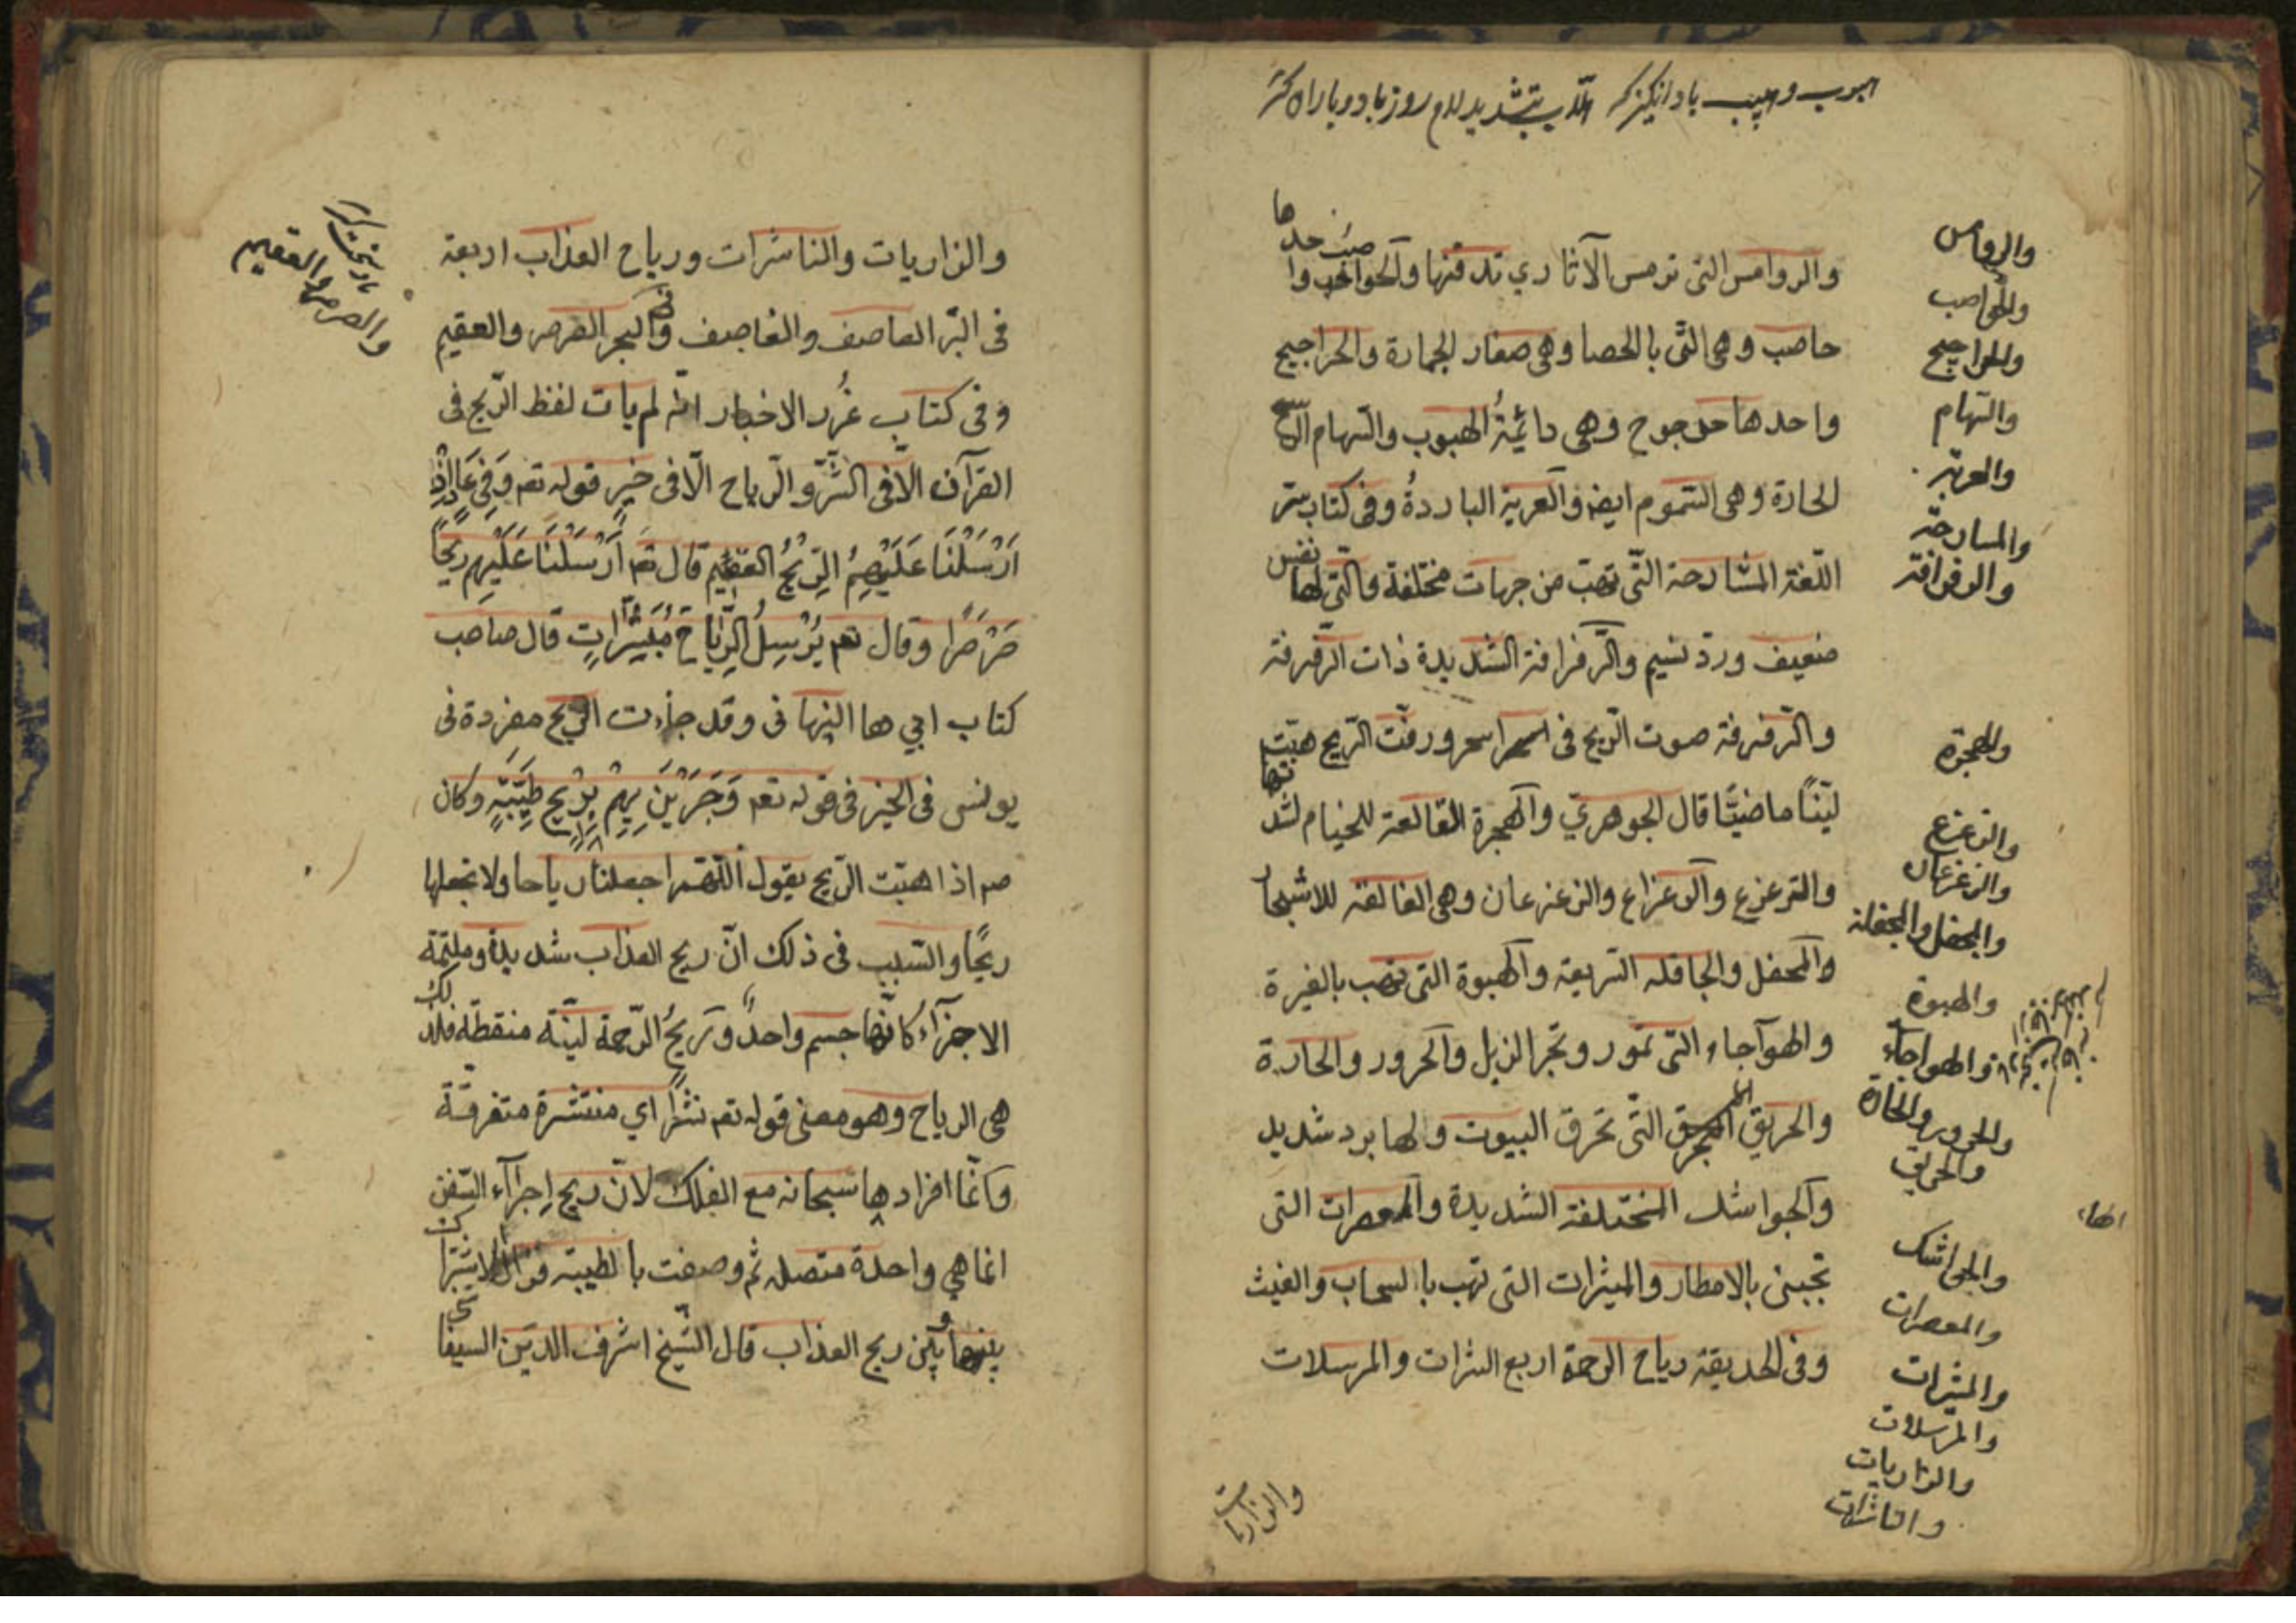 هبوب وهبيب باد انگيز كه اللّاب بتشديد لام روز باد و باران
والروامس التى ترمس الآثار اي تدفنها والحواصب واحدها
حاصب وهى التّى بالحصا وهى صغار الحجارة والحراجيج
واحدها حرجوج وهى دائمةُ الهبوب والسّهام الرّيح
الحارة وهى السّموم ايضه والعرية الباردةُ وفى كتاب سرّ
اللّغة المشارحة التّى تهبّ من جهات مختلفة والتّى لها نفس
ضعيف ورد نسيم والزّفزافة الشديدة ذات الزّفزفة
والزّفزفة صوت الرّيح فى الشجر ورفّت الرّيح هبّت
ليّنًا ماضيًا قال الجوهريّ والهجرة القالعة للخيام لشدتها
والزعزع والزعزاع والزعزعان وهى القالعة للاشجار
والمحفل والجافله السّريعة والهبوة التى تهب بالغبرة
والهوآجاء التى تمور وتجر الذيل والحرور والحارة
والحريق المحرق التّى تخرق البيوت ولها برد شديد
والجواشك المختلفة الشديدة والمعصرات التى
تجبنى بالامطار والمبشرات التى تهب بالسحاب والغيث
وفى الحديقة رياح الرحمة اربع البشرات والمرسلات
والروامس
والحواصب
والحراجيج
والسّهام
والعرية
والمسارحة
والزفزافة
والهجرة
والزعزع
والزعزعان
والمحفل والمجفلة
والهبوة
والهواجاء
والحرور والحارة
والحريق
والجواشك
والمعصرات
والمبشرات
والمرسلات
والذاريات
والناشرات
والذاريات
والذاريات والناشرات ورياح العذاب اربعة
فى البرّ العاصف والقاصف وفى البحر الصرصر والعقيم
وفى كتاب غُرر الاخبار انّه لم يات لفظ الرّيح فى
القرآن الّا فى الشرّ والرياح الّا فى خير قوله تعه وَفِى عَادٍ اِذْ
اَرْسَلْنَا عَلَيْهِمُ الرِّيْحُ العقيم قال تعه اَرْسَلْنَا عَلَيْهِم رِيحًا
صَرْصَرًا وقال تعه يُرْسِلُ الرِّيَاحَ مُبَشِّرَاتٍ قال صاحب
كتاب ابي ها النهافى وقد جاءت الريح مفردة فى
يونس فى الخير فى قوله تعه وَجَرَيْنَ بِهِمْ بِرِيْحٍ طَيِّبَةٍ وكان
صم اذا هبّت الرّيح يقول اللّهمّ اجعلها رياحا ولا تجعلها
ريحًا والسّبب فى ذلك انّ ريح العذاب شديدة وملتمّة
الاجزآء كانّها جسم واحدٌ وَرِيحُ الرّحمة ليّنة منقطة فلذلك
هى الرياح وهو معنى قوله تعه نشرًا اي منتشرة متفرقة
وانّما افردها سبحانه مع الفلك لانّ ريح اجرآء السّفن
انما هي واحدة متصله ثم وصفت بالطيبة فزال الاشتراك
بينها وبين ريح العذاب قال الشّيخ اشرف الدين السيفا
والصرصر والعقيم